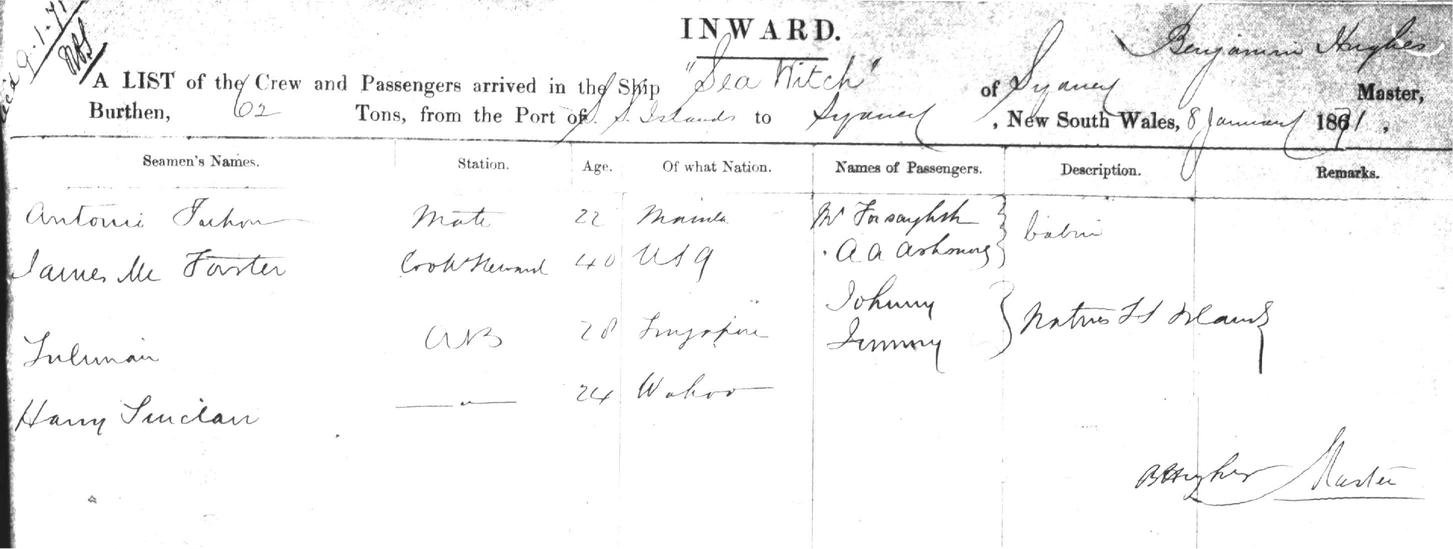 9.1.71
INWARD.
Benjamin Hughes
A LIST of the Crew and Passengers arrived in the Ship "Sea Witch" of Sydney Master,
Burthen, 62 Tons, from the Port of S. S. Islands to Sydney, New South Wales, 8 January 1871,
Seamen's Names. Station. Age. Of what Nation. Names of Passengers. Description. Remarks.
Antonie Mate 22 Manila Mr Cabin
James Mc Forster Cook & Steward 40 USA A A
Johnny Natives S S Islands
AB 28 Singapore Jimmy
Harry Sinclair —"— 24 Wahoo
B Hughes Master